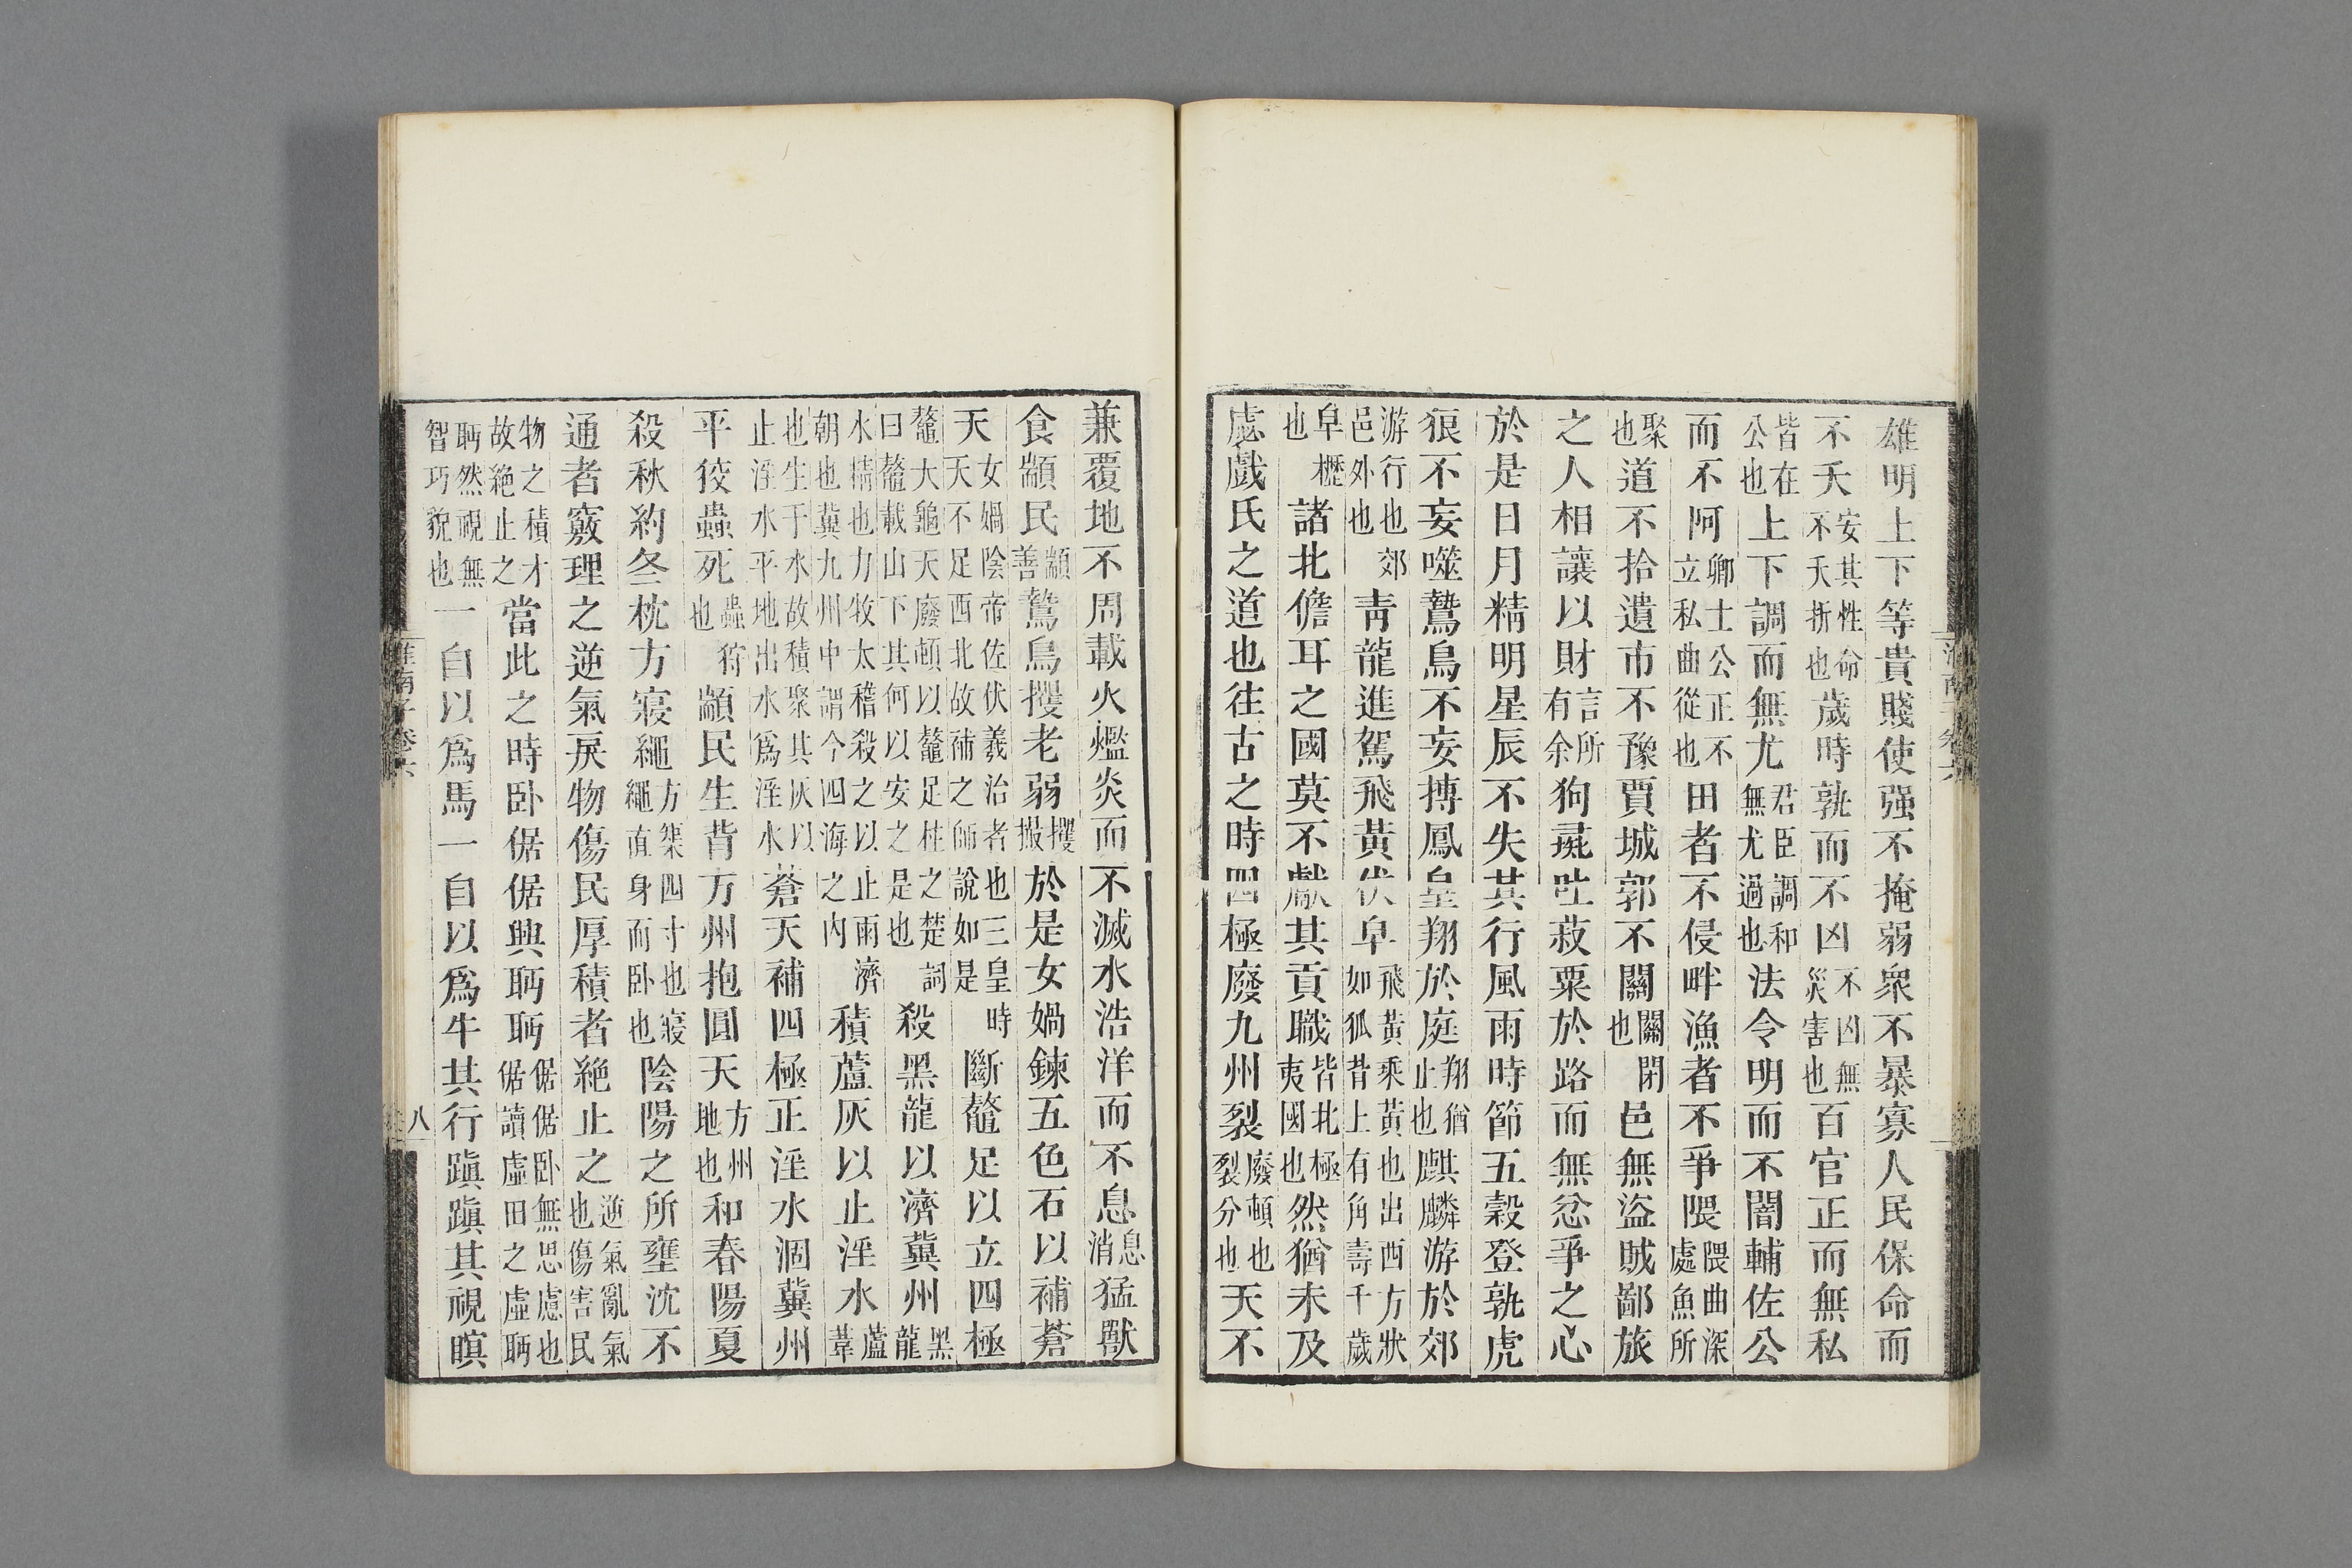 雄明上下等貴賤使强不掩弱衆不暴寡人民保命而
不夭安其性命不夭折也歲時孰而不凶不凶無災害也百官正而無私
皆在公也上下調而無尤君臣調和無尤過也法令明而不闇輔佐公
而不阿卿士公正不立私曲從也田者不侵畔漁者不爭隈隈曲深處魚所
聚也道不拾遺市不豫賈城郭不關關閉也邑無盜賊鄙旅
之人相讓以財言所有余狗彘吐菽粟於路而無忿爭之心
於是日月精明星辰不失其行風雨時節五穀登孰虎
狼不妄噬鷙鳥不妄搏鳳皇翔於庭翔猶止也麒麟游於郊
游行也郊邑外也青龍進駕飛黃伏皁飛黃乘黃也出西方狀如狐背上有角壽千歲
皁櫪也諸北儋耳之國莫不獻其貢職皆北極夷國也然猶未及
虙戲氏之道也往古之時四極廢九州裂廢頓也裂分也天不
兼覆地不周載火爁炎而不滅水浩洋而不息息消猛獸
食顓民顓善鷙鳥攫老弱攫撮於是女媧鍊五色石以補蒼
天女媧陰帝佐伏羲治者也三皇時天不足西北故補之師說如是斷鼇足以立四極
鼇大龜天廢頓以鼇足柱之楚詞曰鼇載山下其何以安之是也殺黑龍以濟冀州黑龍
水精也力牧太稽殺之以止雨濟朝也冀九州中謂今四海之內積蘆灰以止淫水蘆葦
也生于水故積聚其灰以止淫水平地出水爲淫水蒼天補四極正淫水涸冀州
平狡蟲死蟲狩也顓民生背方州抱圓天方州地也和春陽夏
殺秋約冬枕方寢繩方榘四寸也寢繩直身而臥也陰陽之所壅沈不
通者竅理之逆氣戾物傷民厚積者絕止之逆氣亂氣也傷害民
物之積才故絕止之當此之時臥倨倨興眄眄倨倨臥無思慮也倨讀虛田之虛眄
眄然視無智巧貌也一自以爲馬一自以爲牛其行蹎蹎其視瞑
淮南子卷六
八